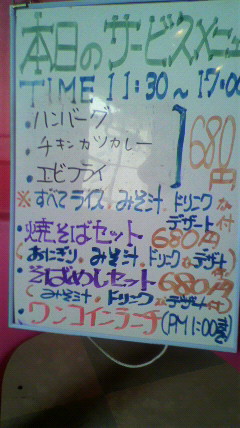 本日のサービスメニュー
TIME 11:30~17:00
・ハンバーグ
・チキンカツカレー
・エビフライ
680円
※すべてライス、みそ汁、ドリンク
デザート付
・焼そばセット 680円
(おにぎり、みそ汁、ドリンク、デザート付)
・そばめしセット 680円
(みそ汁、ドリンク、デザート付)
・ワンコインランチ(PM1:00まで)